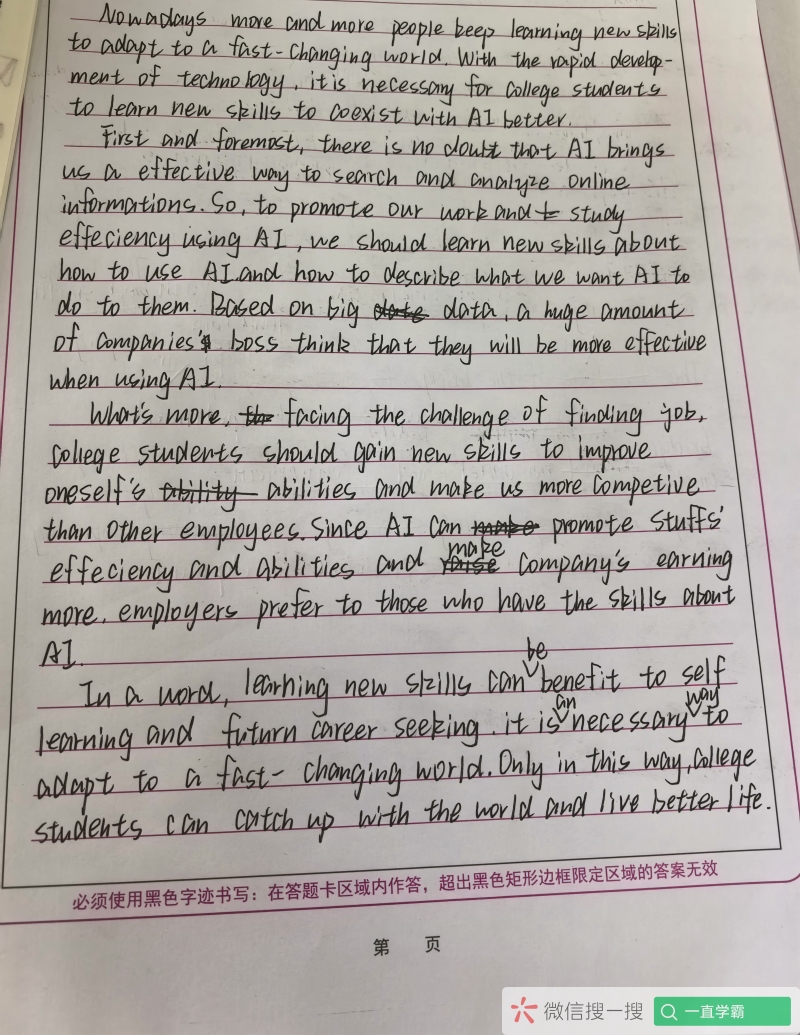 Nowadays more and more people keep learning new skills
to adapt to a fast-changing world. With the rapid develop-
ment of technology, it is necessary for college students
to learn new skills to coexist with AI better.
First and foremost, there is no doubt that AI brings
us a effective way to search and analyze online
informations. So, to promote our work and study
effeciency using AI, we should learn new skills about
how to use AI and how to describe what we want AI to
do to them. Based on big data, a huge amount
of companies' boss think that they will be more effective
when using AI.
What's more, facing the challenge of finding job,
college students should gain new skills to improve
oneself's abilities and make us more competive
than other employees. Since AI can promote stuffs'
effeciency and abilities and make company's earning
more, employers prefer to those who have the skills about
AI.
In a word, learning new skills can be benefit to self
learning and futurn career seeking. it is an necessary way to
adapt to a fast-changing world. Only in this way, college
students can catch up with the world and live better life.
必须使用黑色字迹书写：在答题卡区域内作答，超出黑色矩形边框限定区域的答案无效
第 页
微信搜一搜 一直学霸